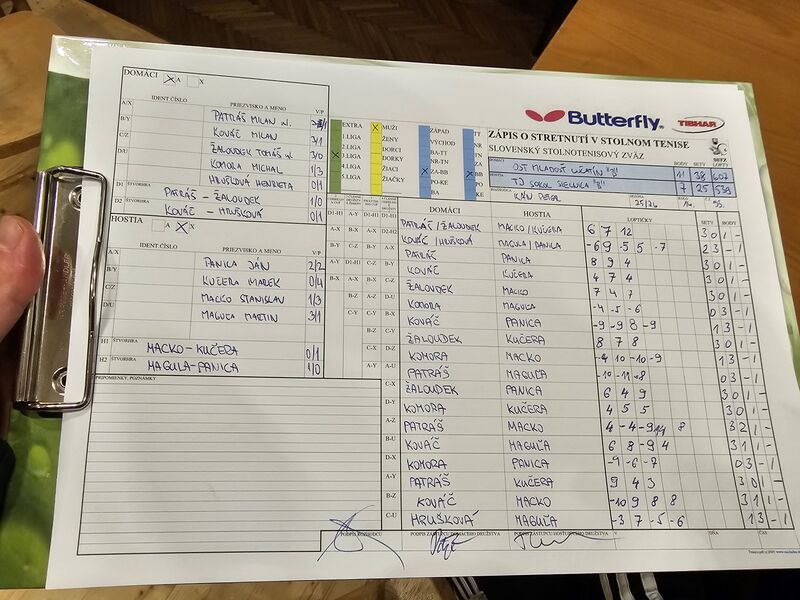 DOMÁCI X A X
IDENT.ČÍSLO PRIEZVISKO A MENO V/P
A/X PATRÁŠ MILAN
B/Y KOVÁČ MILAN 3/1
C/Z ŽALOUDEK TOMÁŠ 3/0
D/U KOMORA MICHAL 1/3
HRUŠKOVÁ HENRIETA 0/1
D1 ŠTVORHRA PATRÁŠ - ŽALOUDEK 1/0
D2 KOVÁČ - HRUŠKOVÁ 0/1
HOSTIA A X
IDENT.ČÍSLO PRIEZVISKO A MENO V/P
A/X PANICA JÁN 2/2
B/Y KUČERA MAREK 0/4
C/Z MACKO STANISLAV 1/3
D/U MAGUĽA MARTIN 3/1
H1 ŠTVORHRA MACKO - KUČERA 0/1
H2 ŠTVORHRA MAGULA - PANICA 1/0
PRIPOMIENKY, POZNÁMKY
EXTRA
1.LIGA
2.LIGA
3.LIGA
4.LIGA
5.LIGA
6.LIGA
7.LIGA
X MUŽI
ŽENY
DORCI
DORKY
ŽIACI
ŽIAČKY
ZÁPAD
VÝCHOD
BA-TT
NR-TN
ZA-BB
PO-KE
BA
TT
NR
TN
ZA
BB
PO
KE
Butterfly
TIBHAR
ZÁPIS O STRETNUTÍ V STOLNOM TENISE
SLOVENSKÝ STOLNOTENISOVÝ ZVÄZ
BODY SETY LOPTY
OST MLADOSŤ 11 38 602
TJ SOKOL SIELNICA "B" 7 25 539
KÁN PETER 25/26
DOMÁCI HOSTIA LOPTIČKY SETY BODY
PATRÁŠ/ŽALOUDEK MACKO/KUČERA 6 7 12 3 0 1 -
KOVÁČ/HRUŠKOVÁ MAGULA/PANICA -6 9 -5 5 -7 2 3 - 1
PATRÁŠ PANICA 8 9 4 3 0 1 -
KOVÁČ KUČERA 4 7 4 3 0 1 -
ŽALOUDEK MACKO 7 4 7 3 0 1 -
KOMORA MAGUĽA -4 -5 -6 0 3 - 1
KOVÁČ PANICA -9 -9 8 -9 1 3 - 1
ŽALOUDEK KUČERA 8 7 8 3 0 1 -
KOMORA MACKO -4 10 -10 -9 1 3 - 1
PATRÁŠ MAGUĽA -10 -11 -8 0 3 - 1
ŽALOUDEK PANICA 6 4 9 3 0 1 -
KOMORA KUČERA 4 5 5 3 0 1 -
PATRÁŠ MACKO 4 -4 -9 14 8 3 2 1 -
KOVÁČ MAGUĽA 6 8 -9 4 3 1 1 -
KOMORA PANICA -9 -6 -7 0 3 - 1
PATRÁŠ KUČERA 9 4 3 3 0 1 -
KOVÁČ MACKO -10 9 8 8 3 1 1 -
HRUŠKOVÁ MAGUĽA -3 7 -5 -6 1 3 - 1
PODPIS ROZHODCU PODPIS ZÁSTUPCU DOMÁCEHO DRUŽSTVA PODPIS ZÁSTUPCU HOSŤUJÚCEHO DRUŽSTVA V DŇA ČAS